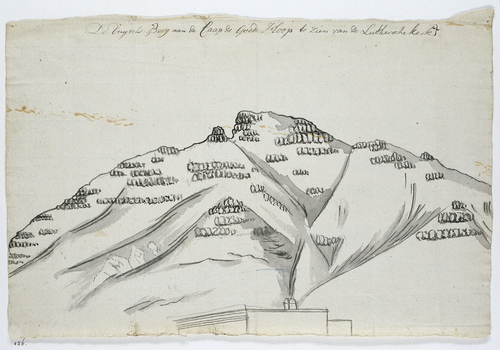 De Duyvels-Berg aan de Caap de Goede Hoop te zien van de Luthersche kerk